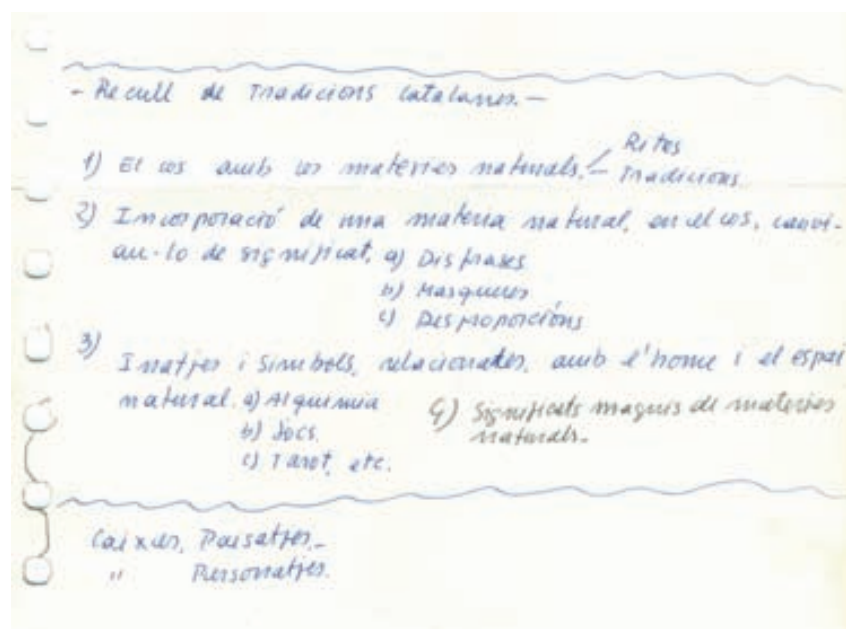 - Recull de Tradicions Catalanes. -
1) El cos amb les matèries naturals. - Ritos
Tradicions
2) Incorporació de una materia natural, en el cos, canvi-
an-lo de significat. a) Disfrases
b) Masqueres
c) Desproporcións
3) Imatjes i Simbols, relacionades, amb l'home i el espai
natural. a) Alquimia
b) Jocs.
c) Tarot, etc.
4) Significats magics de materies
naturals. -
Caixes, Paisatjes. -
" Personatjes.